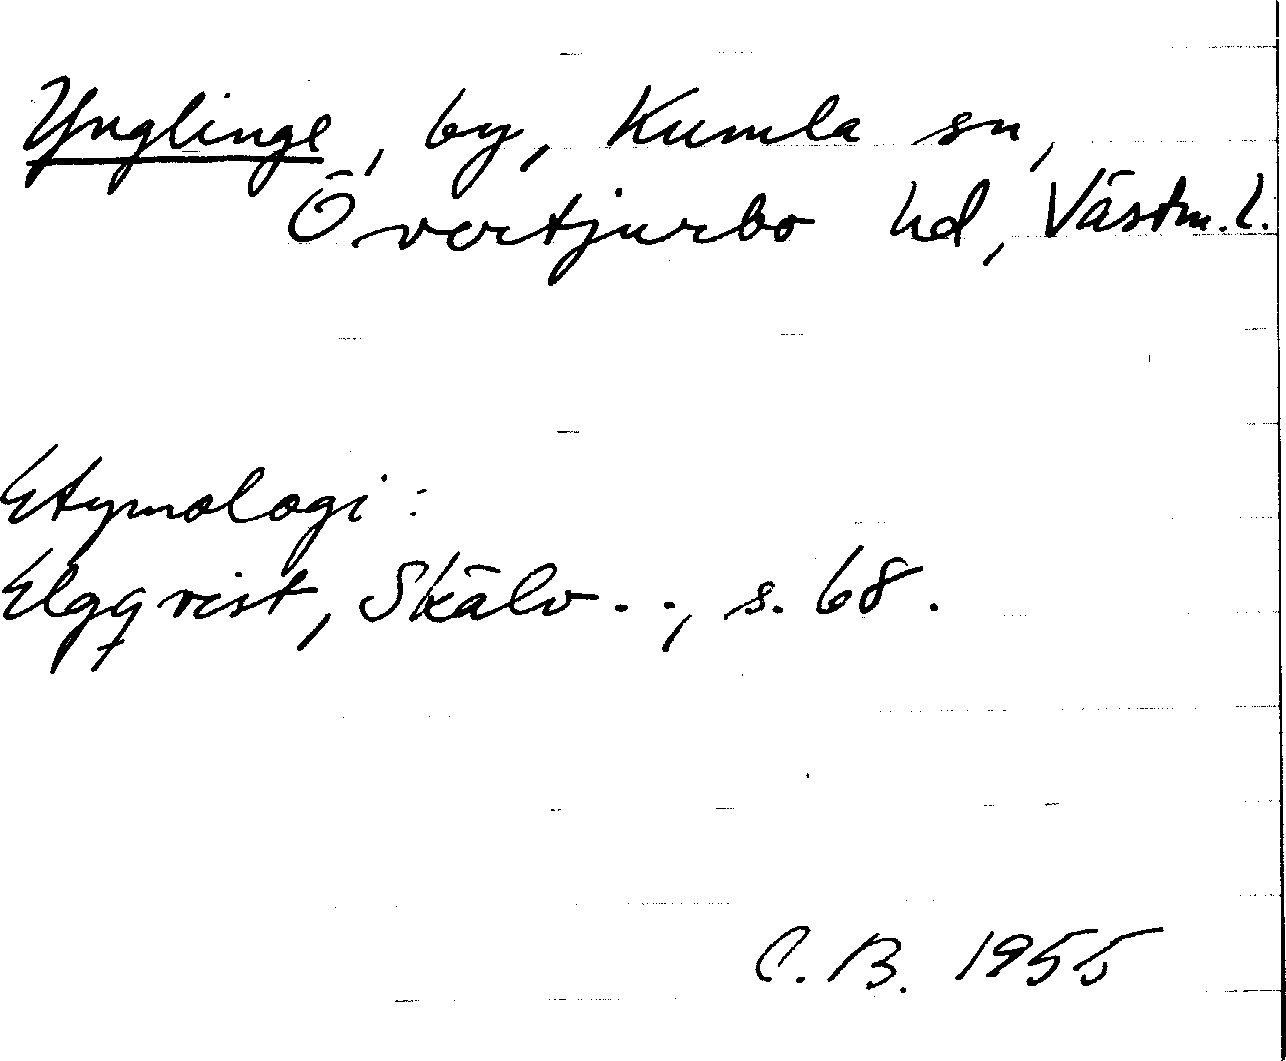 Ynglinge, by, Kumla sn,
Övertjurbo hd, Västm. l.
Etymologi:
Elgqvist, Skälv . ., s. 68.
C. B. 1955